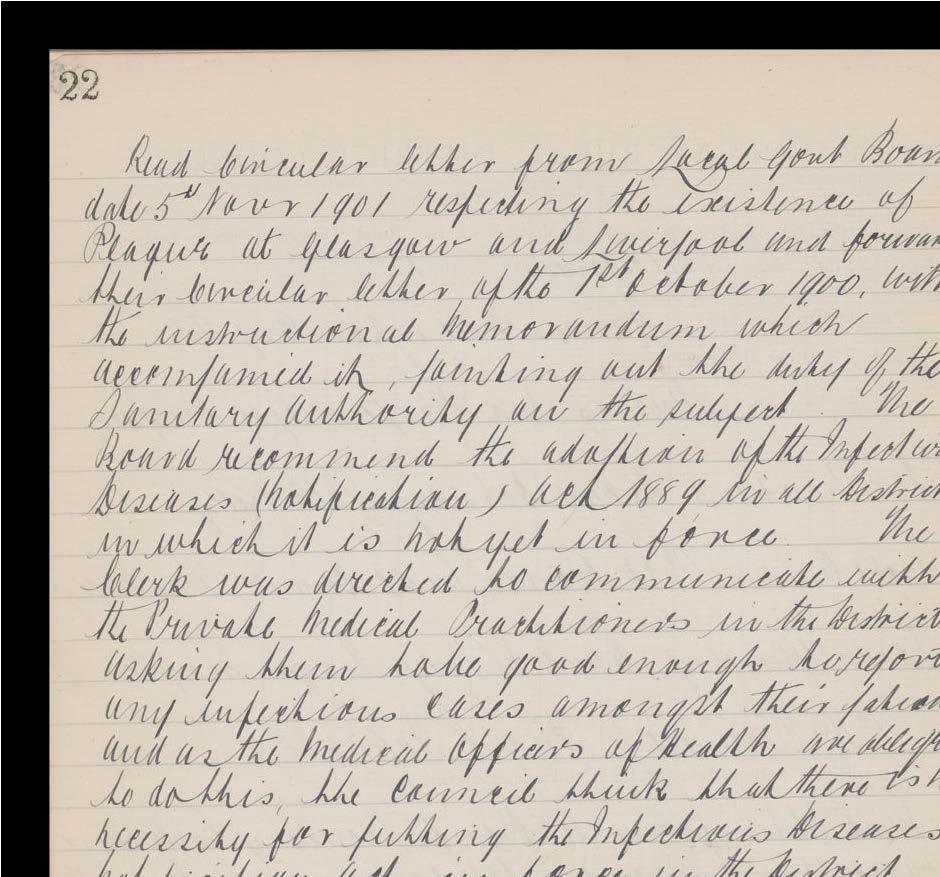 22
Read Circular letter from Local Govt Boar
date 5th Novr 1901 respecting the existence of
Plague at Glasgow and Liverpool and forwar
their Circular letter of the 1st October 1900, with
the instructional Memorandum which
accompanied it, pointing out the duty of the
Sanitary Authority on the subject. The
Board recommend the adoption of the Infectio
Diseases (Notification) Act 1889 in all District
in which it is not yet in force. The
Clerk was directed to communicate with
the Private Medical Practitioners in the District
asking them to be good enough to repor
any infectious cases amongst their patien
and as the Medical Officers of Health are oblige
to do this, the Council think that there is n
necessity for putting the Infectious Diseases
notification Act in force in the District